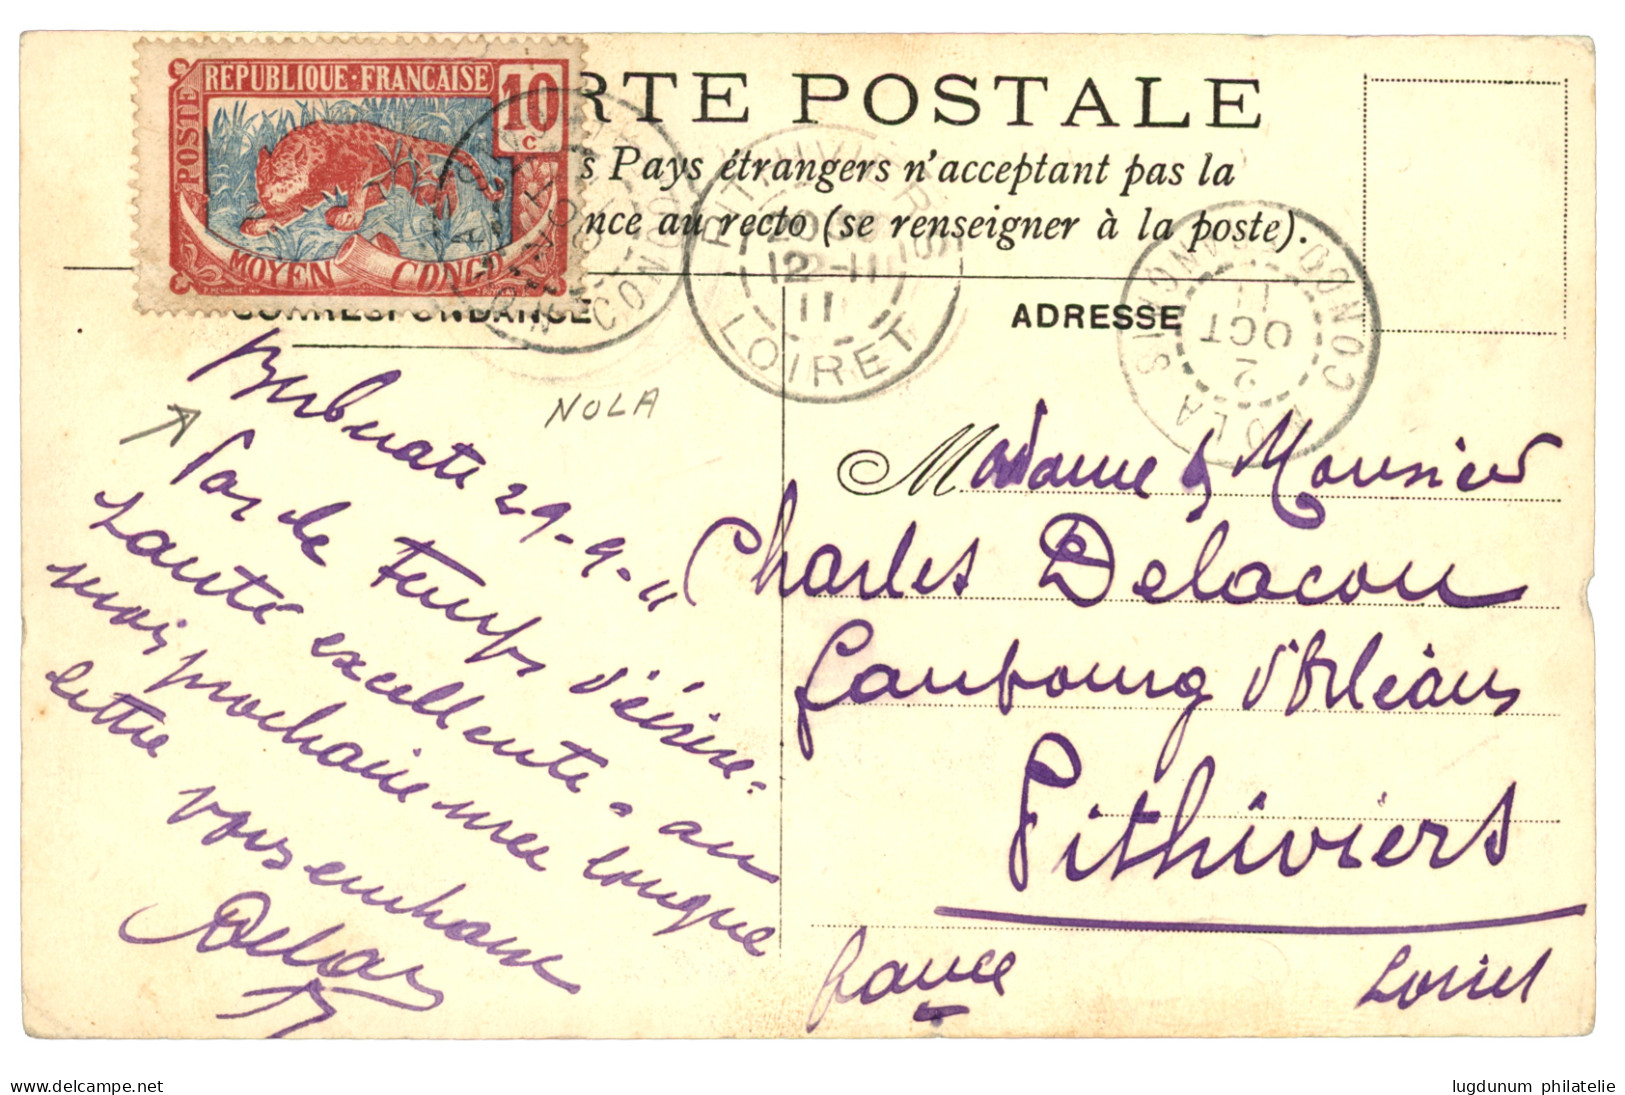 RÉPUBLIQUE·FRANÇAISE
10
c
POSTE
MOYEN CONGO
RTE POSTALE
s Pays étrangers n'acceptant pas la
nce au recto (se renseigner à la poste).
CORRESPONDANCE
ADRESSE
LOIRET
12-11
11
NOLA
CONGO
11
OCT
NOLA
29-9-11
Pas de temps d'écrire.
santé excellente - au
mois prochaine une longue
lettre
vous embrasse
Madame & Monsieur
Charles Delacou
faubourg d'Orléans
Pithiviers
france
Loiret
www.delcampe.net
lugdunum philatelie